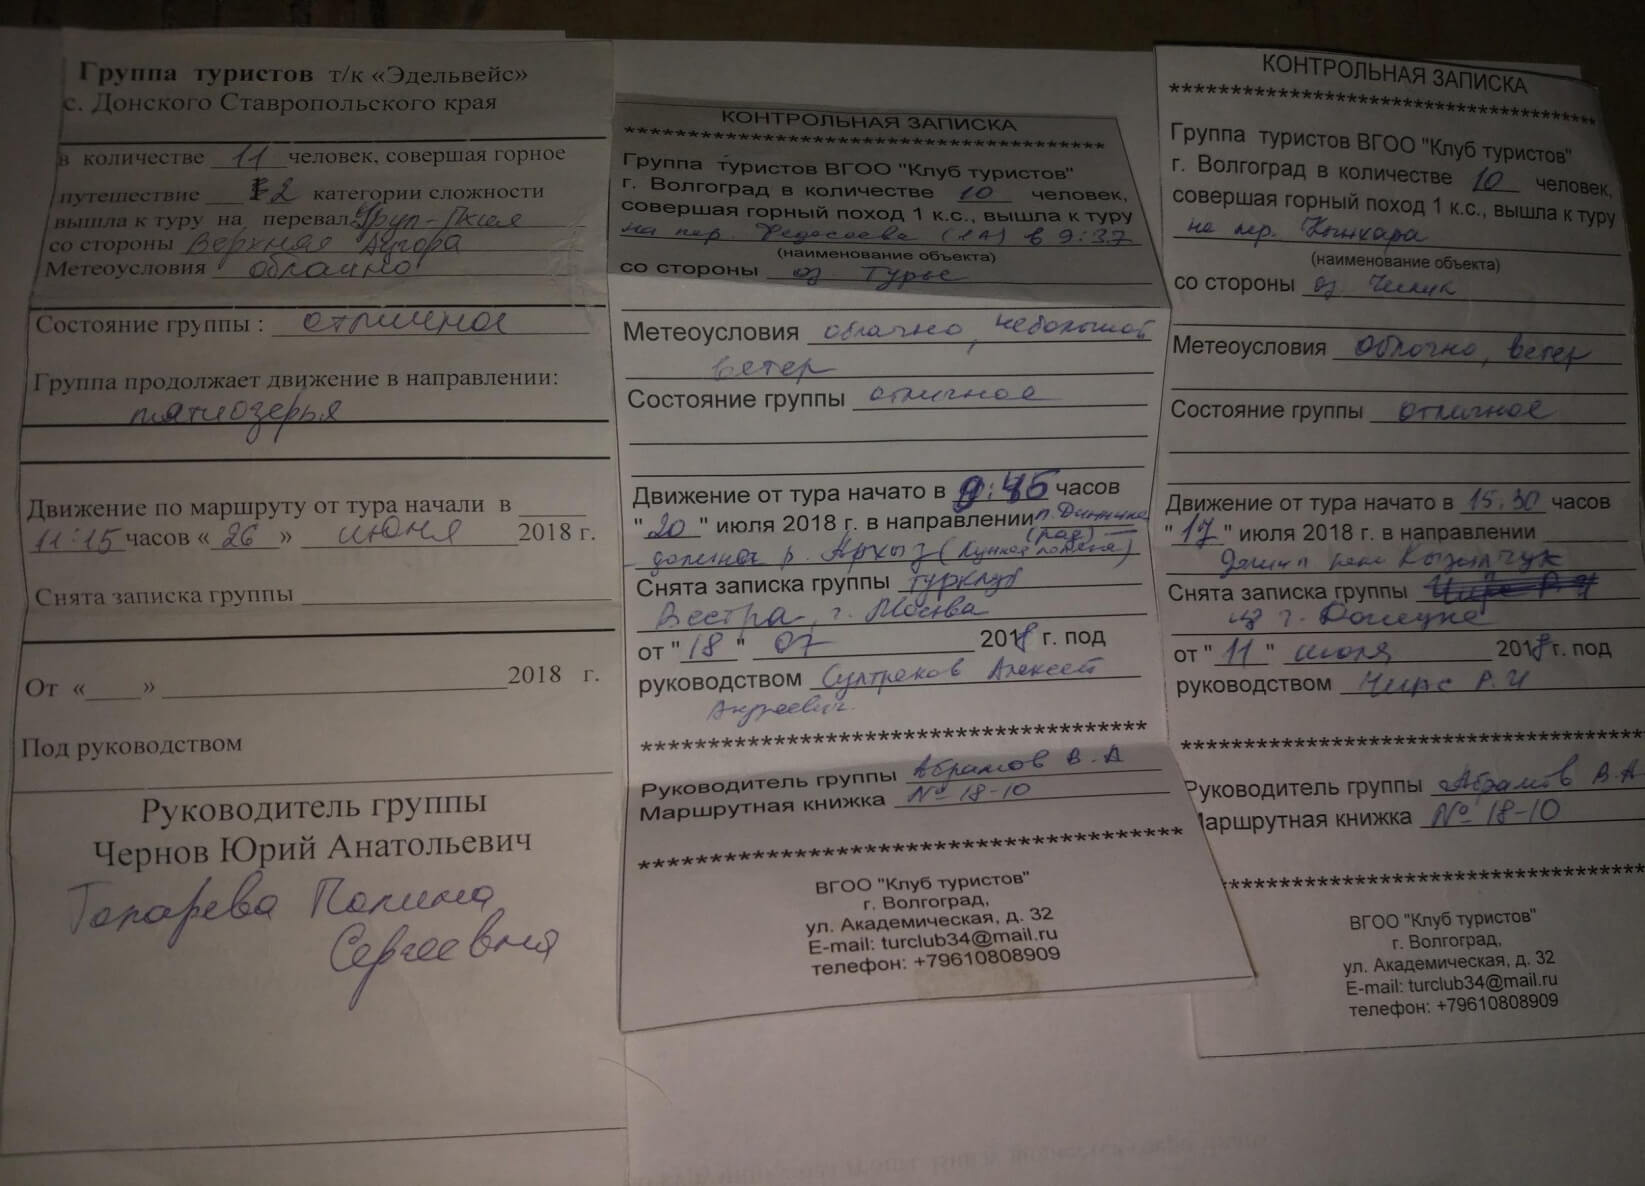 Группа туристов т/к «Эдельвейс»
с. Донского Ставропольского края
в количестве 11 человек, совершая горное
путешествие 2 категории сложности
вышла к туру на перевал
со стороны Верхняя
Метеоусловия облачно
Состояние группы : отличное
Группа продолжает движение в направлении:
пятиозерья
Движение по маршруту от тура начали в
11:15 часов « 26 » июня 2018 г.
Снята записка группы
От « » 2018 г.
Под руководством
Руководитель группы
Чернов Юрий Анатольевич
Полина
Сергеевна
КОНТРОЛЬНАЯ ЗАПИСКА
****************************************
Группа туристов ВГОО "Клуб туристов"
г. Волгоград в количестве 10 человек,
совершая горный поход 1 к.с., вышла к туру
на пер. Федосеева (1А) в 9:37
(наименование объекта)
со стороны оз. Турье
Метеоусловия облачно, небольшой
ветер
Состояние группы отличное
Движение от тура начато в 9:45 часов
" 20 " июля 2018 г. в направлении п.
(рад) —
долина р. Архыз (Лунная поляна)
Снята записка группы турклуб
Вестра, г. Москва
от " 18 " 07 2018 г. под
руководством Султреков Алексей
Андреевич.
****************************************
Руководитель группы Абрамов В.А
Маршрутная книжка № 18-10
****************************************
ВГОО "Клуб туристов"
г. Волгоград,
ул. Академическая, д. 32
E-mail: turclub34@mail.ru
телефон: +79610808909
КОНТРОЛЬНАЯ ЗАПИСКА
****************************************
Группа туристов ВГОО "Клуб туристов"
г. Волгоград в количестве 10 человек,
совершая горный поход 1 к.с., вышла к туру
на пер. Кынхара
(наименование объекта)
со стороны оз. Чилик
Метеоусловия облачно, ветер
Состояние группы отличное
Движение от тура начато в 15:30 часов
" 17 " июля 2018 г. в направлении
реки Кызылчук
Снята записка группы
из г. Донецка
от " 11 " июля 2018 г. под
руководством Чирс Р.И
****************************************
Руководитель группы Абрамов В.А
Маршрутная книжка № 18-10
****************************************
ВГОО "Клуб туристов"
г. Волгоград,
ул. Академическая, д. 32
E-mail: turclub34@mail.ru
телефон: +79610808909